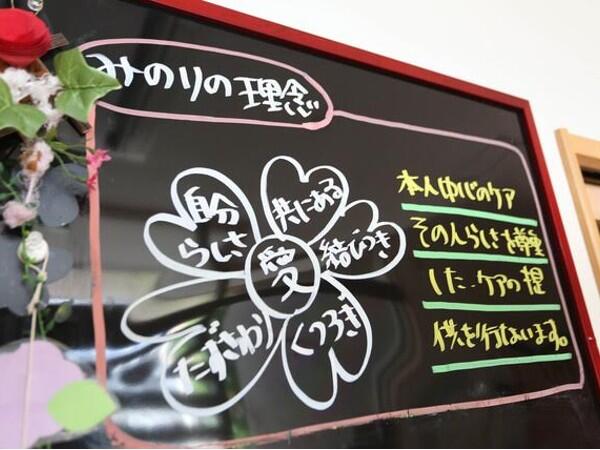 みのりの理念
自分
らしさ
共にある
結びつき
愛
たずさわり
くつろぎ
本人中心のケア
その人らしさを尊重
した、ケアの提
供を行ないます。